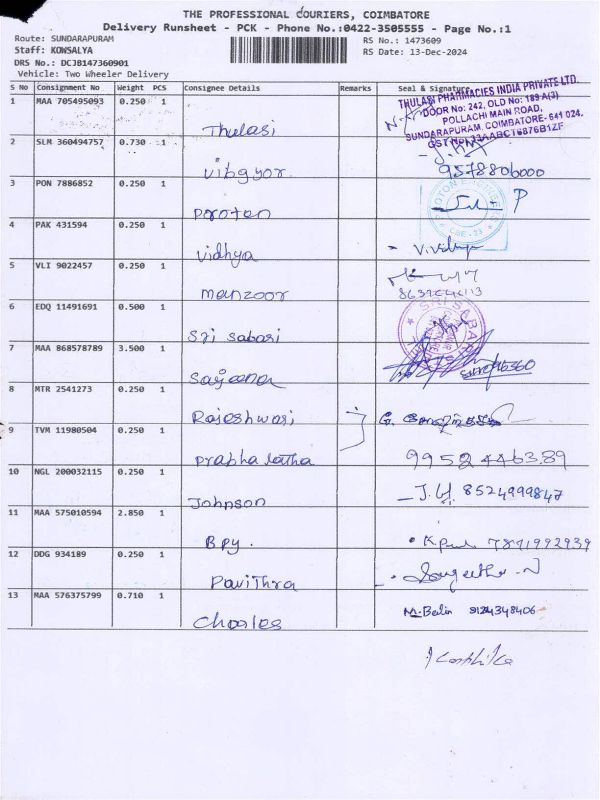 THE PROFESSIONAL COURIERS, COIMBATORE
Delivery Runsheet - PCK - Phone No.:0422-3505555 - Page No.:1
Route: SUNDARAPURAM
RS No.: 1473609
Staff: KOWSALYA
RS Date: 13-Dec-2024
DRS No.: DCJB147360901
Vehicle: Two Wheeler Delivery
S No Consignment No Weight PCS Consignee Details Remarks Seal & Signature
1 MAA 705495093 0.250 1 Thulasi
THULASI PHARMACIES INDIA PRIVATE LTD.
DOOR No: 242, OLD No: 189 A(3)
POLLACHI MAIN ROAD,
SUNDARAPURAM, COIMBATORE- 641 024.
2 SLM 360494757 0.730 1 Vibgyor 9578806000
3 PON 7886852 0.250 1 Proton
4 PAK 431594 0.250 1 Vidhya V.Vidhya
5 VLI 9022457 0.250 1 Manzoor
6 EDQ 11491691 0.500 1 Sri Sabari
SRI SABARI
7 MAA 868578789 3.500 1 Sajeena
8 MTR 2541273 0.250 1 Rajeshwari
9 TVM 11980504 0.250 1 Prabha latha 9952446389
10 NGL 200032115 0.250 1 Johnson 8524999847
11 MAA 575010594 2.850 1 Bpy. 7871992939
12 DDG 934189 0.250 1 Pavithra
13 MAA 576375799 0.710 1 Charles 9124348406